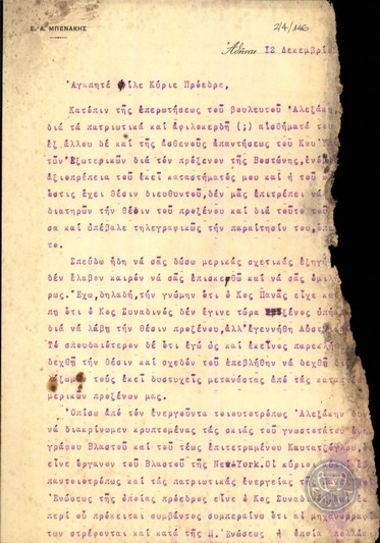 Ε. Α. ΜΠΕΝΑΚΗΣ
2/4/146
Ἀθῆναι 12 Δεκεμβρίο
Ἀγαπητέ φίλε Κύριε Πρόεδρε,
Κατόπιν τῆς ἐπερωτήσεως τοῦ βουλευτοῦ Ἀλεξάκη
διά τά πατριωτικά καί ἀφιλοκερδῆ (;) αἰσθήματά του
ἐξ ἄλλου δέ καί τῆς ἀσθενοῦς ἀπαντήσεως τοῦ Κου Ὑπ
τῶν Ἐξωτερικῶν διά τόν πρόξενον τῆς Βοστώνης, ἐνό
ἀξιοπρέπεια τοῦ ἐκεῖ καταστήματός μου καί ἡ τοῦ
ὅστις ἔχει θέσιν διευθυντοῦ, δέν μᾶς ἐπιτρέπει νά
διατηρῶν τήν θέσιν τοῦ προξένου καί διά τοῦτο τοῦ
σα καί ὑπέβαλε τηλεγραφικῶς τήν παραίτησίν του,
το.
Σπεύδω ἤδη νά σᾶς δώσω μερικάς σχετικάς ἐξηγή
δέν ἔλαβον καιρόν νά σᾶς ἐπισκεφθῶ καί νά σᾶς ὁμιλ
ρως. Ἔχω, δηλαδή, τήν γνώμην ὅτι ὁ Κος Πανᾶς εἶχε κα
πῃ ὅτι ὁ Κος Συναδινός δέν ἔγινε τώρα πρόξενος
διά νά λάβῃ τήν θέσιν προξένου, ἀλλ' ἐγεννήθη
Τό σπουδαιότερον δέ ὅτι ἐγώ ὡς καί ἐκεῖνος παρεκλή
δεχθῇ τήν θέσιν καί σχεδόν τοῦ ἐπεβλήθην νά δεχθῇ δι
τούς ἐκεῖ δυστυχεῖς μετανάστας ἀπό τάς
μερικῶν προξένων μας.
Ὀπίσω ἀπό τόν ἐνεργοῦντα τοιουτοτρόπως Ἀλεξάκην
νά διακρίνωμεν κρυπτομένας τάς σκιάς τοῦ γνωστοτάτου
γράφου Βλαστοῦ καί τοῦ τέως ἐπιτετραμένου Καυτατζόγλου,
εἶνε ὄργανον τοῦ Βλαστοῦ τῆς New York. Οἱ κύριοι
παντοιοτρόπως καί τάς πατριωτικάς ἐνεργείας τῆς
Ἑνώσεως τῆς ὁποίας πρόεδρος εἶνε ὁ Κος Συναδινός
περί οὗ πρόκειται συμβάντος συμπεραίνω ὅτι αἱ μηχανορραφ
των στρέφονται καί κατά τῆς Π. Ἑνώσεως ἡ ὁποία